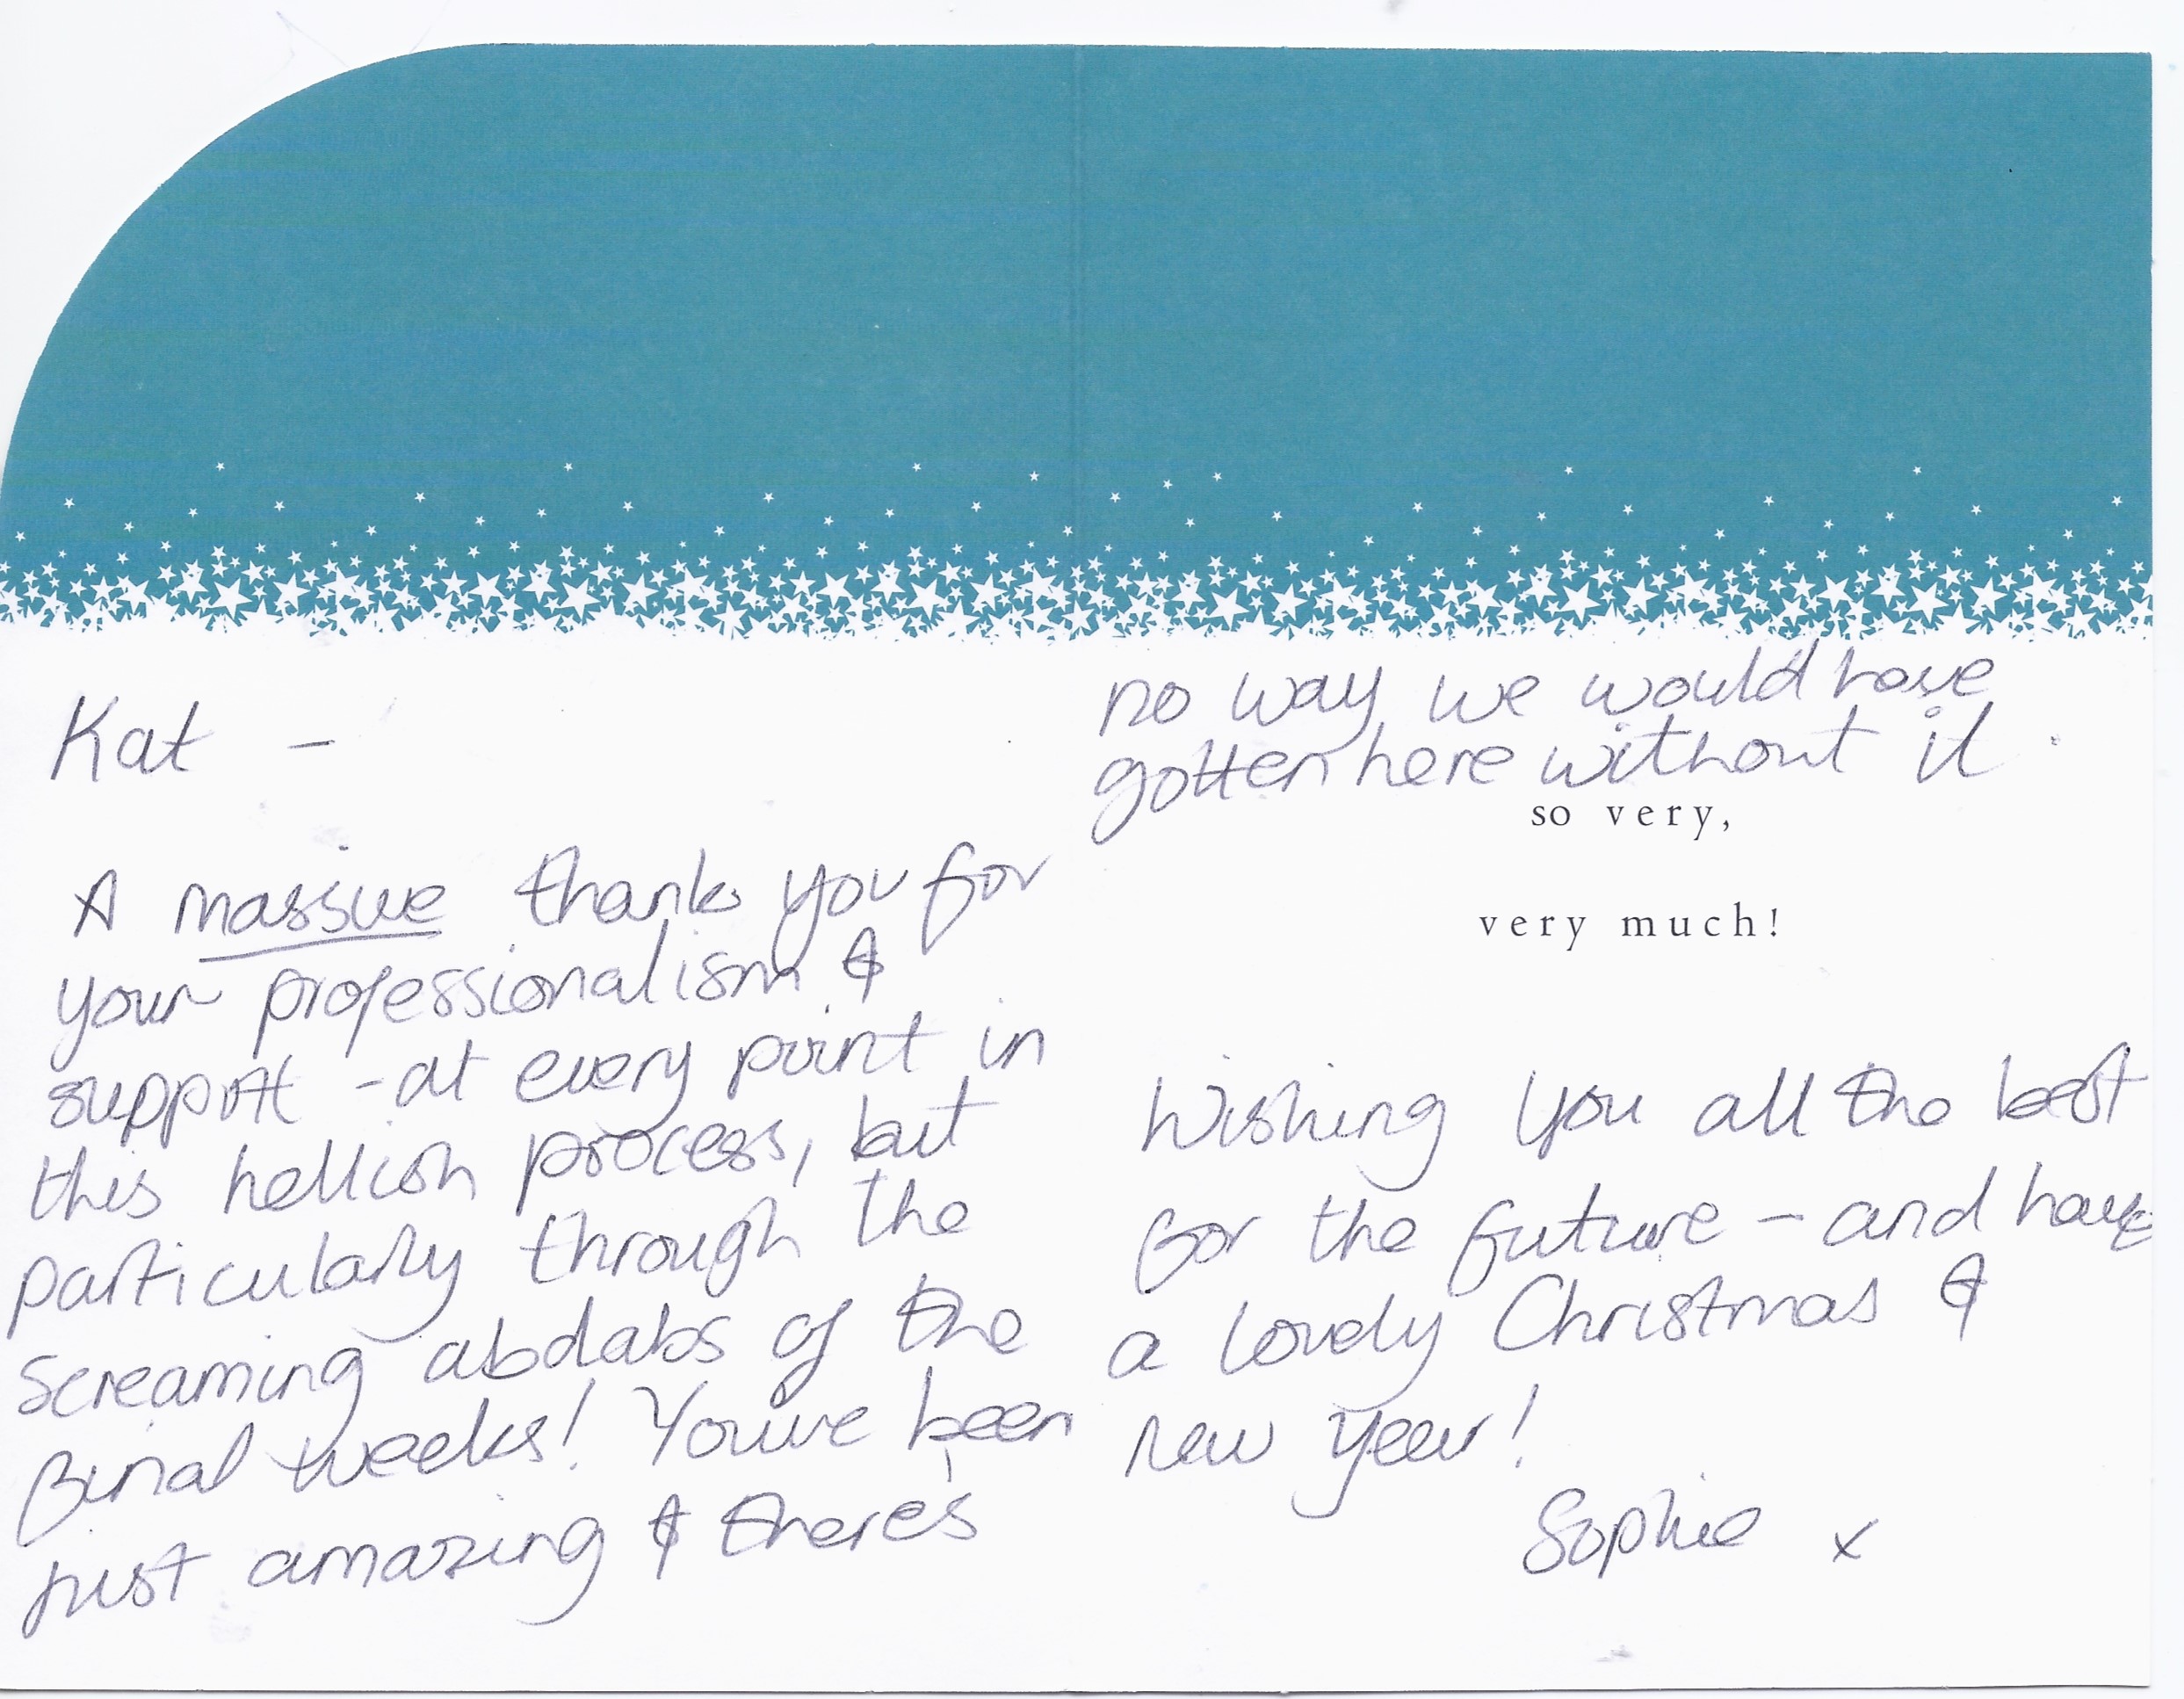 Kat -
A massive thank you for
your professionalism &
support - at every point in
this hellish process, but
particularly through the
screaming abdabs of the
final weeks! You've been
just amazing & there's
no way we would have
gotten here without it.
so very,
very much!
Wishing you all the best
for the future - and have
a lovely Christmas &
new year!
Sophie x